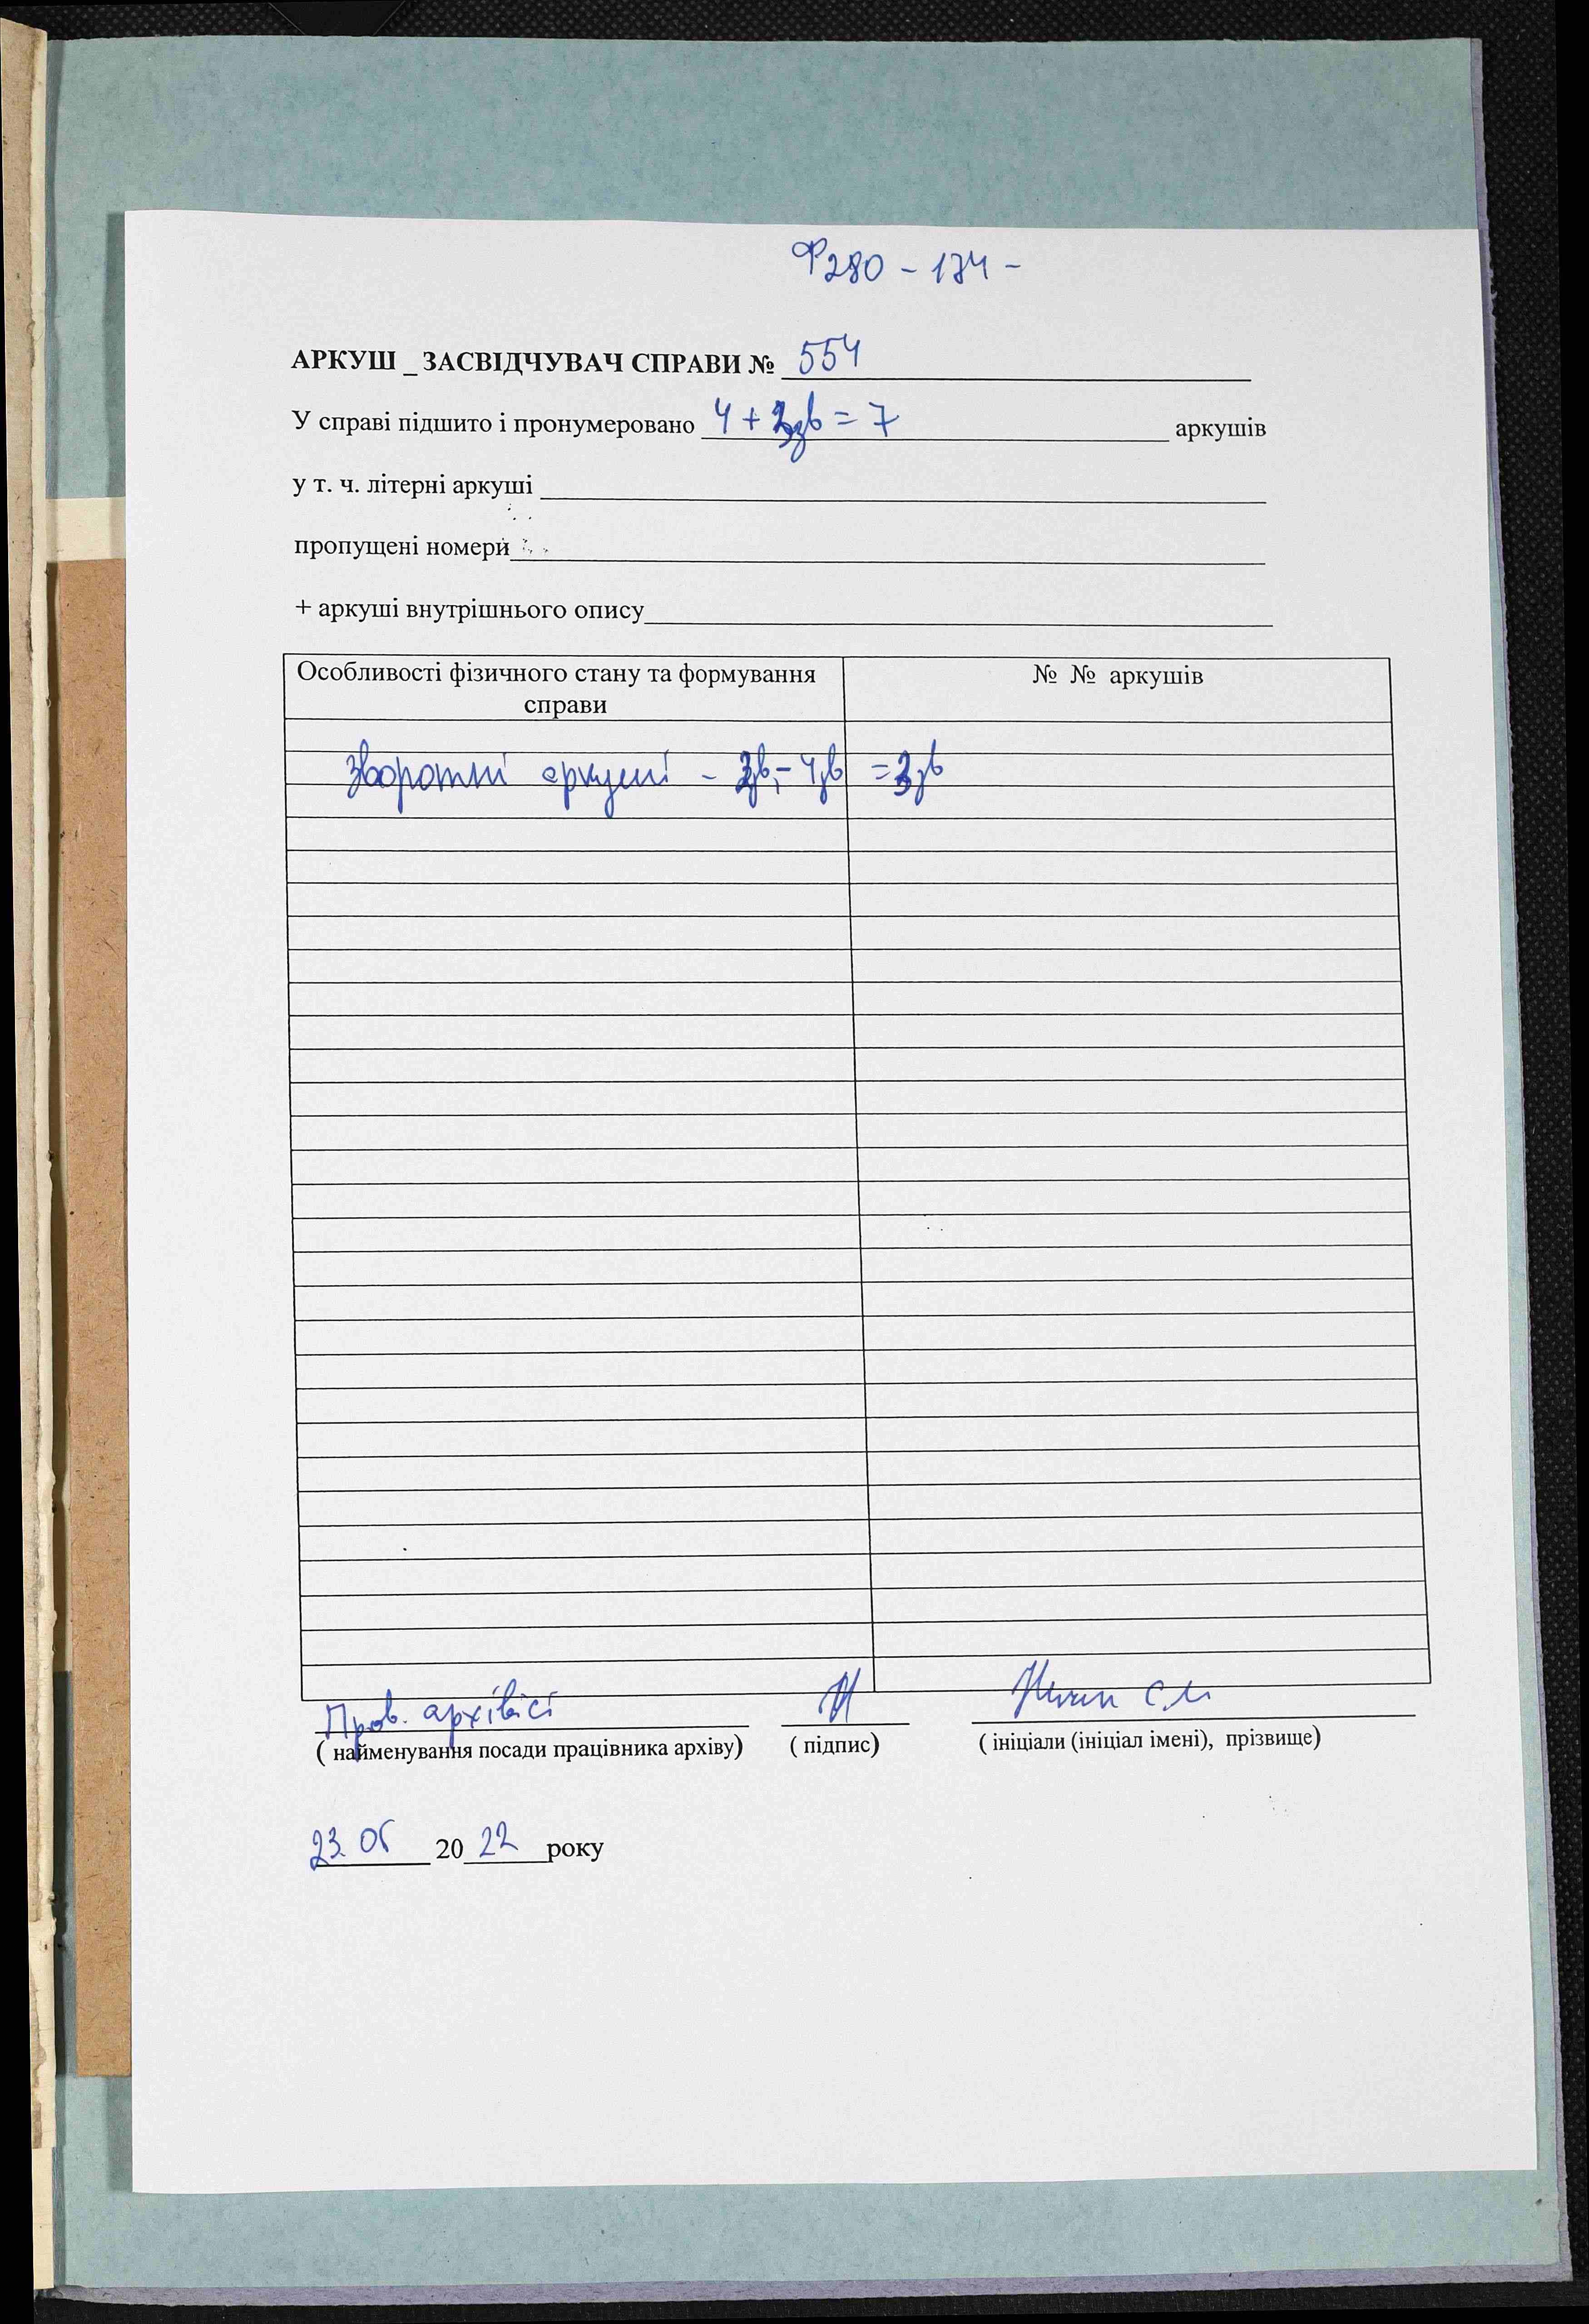 Ф280 - 174 -
АРКУШ _ ЗАСВІДЧУВАЧ СПРАВИ № 554
У справі підшито і пронумеровано 4 + 3зв = 7 аркушів
у т. ч. літерні аркуші
пропущені номери
+ аркуші внутрішнього опису
Особливості фізичного стану та формування справи
№ № аркушів
Зворотні аркуші - 2зв, - 4зв = 3зв
Пров. архівіст
( найменування посади працівника архіву) ( підпис) ( ініціали (ініціал імені), прізвище)
23.05 20 22 року